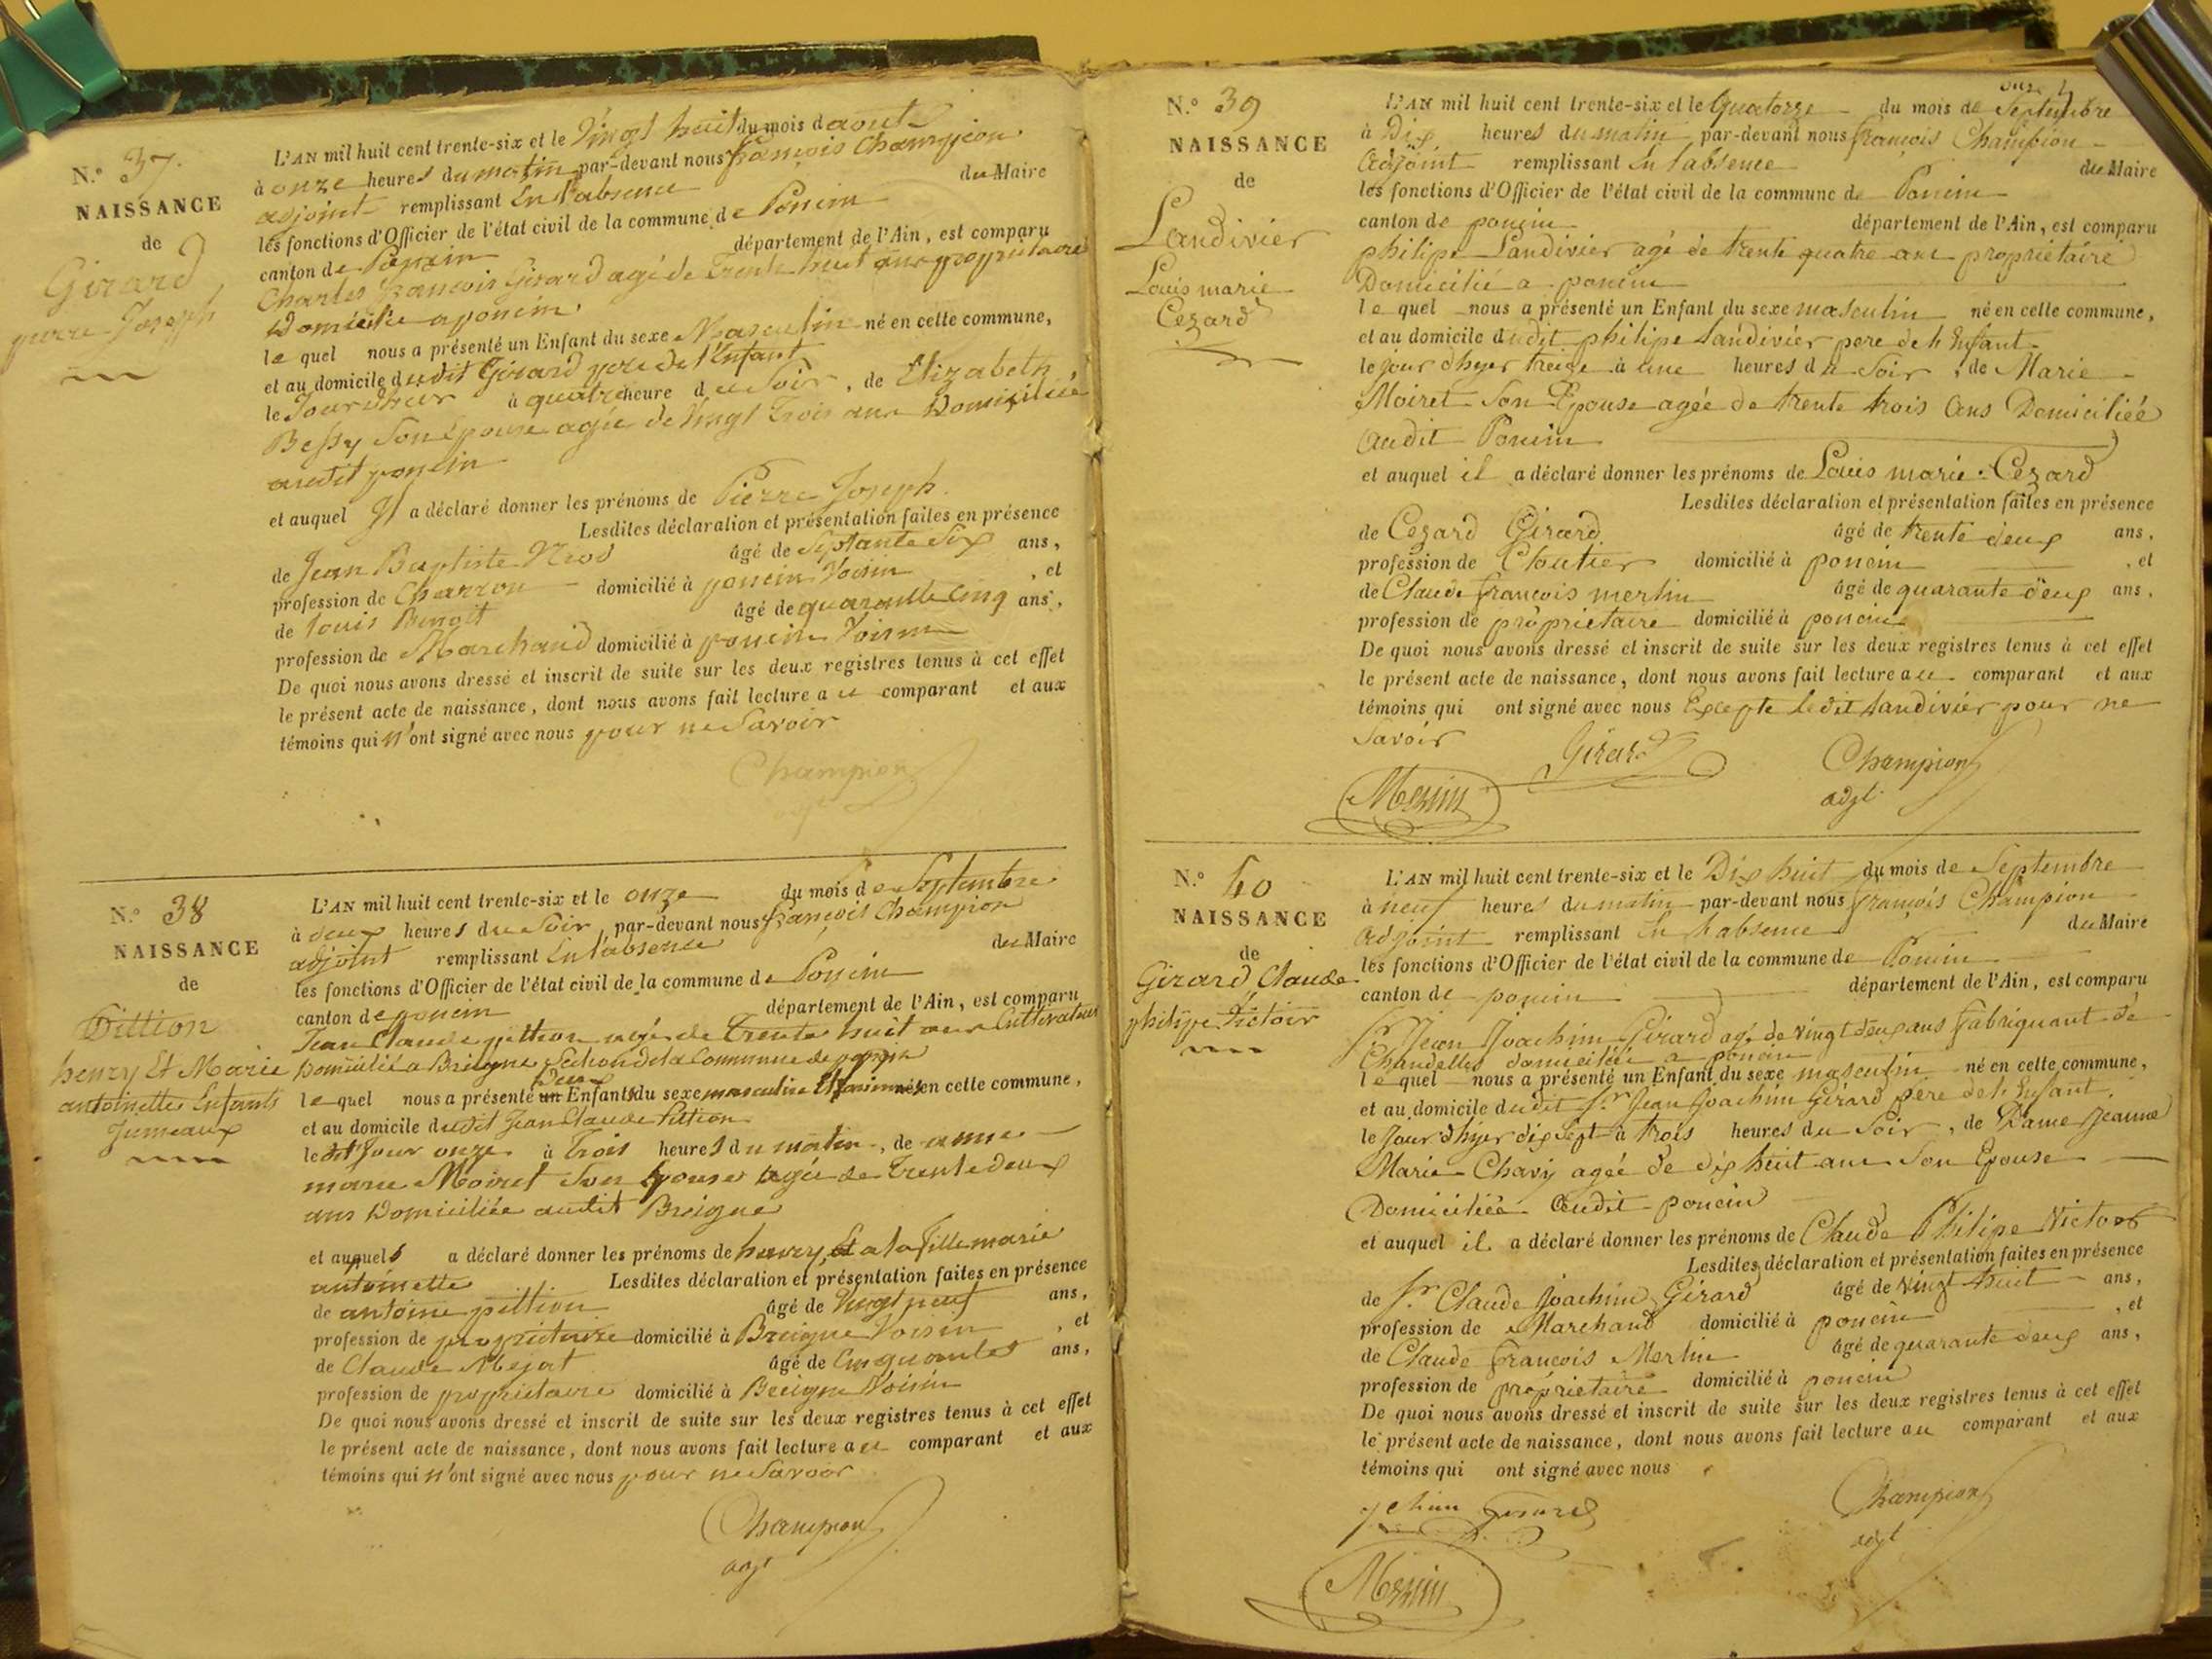 N.° 37.
NAISSANCE
de
Girard
pierre Joseph
L'AN mil huit cent trente-six et le Vingt huit du mois d aout
à onze heures du matin par-devant nous françois Champion
adjoint remplissant En l'absence du Maire
les fonctions d'Officier de l'état civil de la commune de Poncin
canton de Poncin département de l'Ain, est comparu
Charles françois Girard agé de Trente huit ans propriétaire
Domicilié a poncin
le quel nous a présenté un Enfant du sexe Masculin né en cette commune,
et au domicile dudit Girard pere de l'Enfant
le Jour d'hier à quatre heure du Soir, de Elizabeth
Bessy Son Epouse agée de Vingt Trois ans Domiciliée
audit poncin
et auquel Il a déclaré donner les prénoms de Pierre Joseph
Lesdites déclaration et présentation faites en présence
de Jean Baptiste âgé de Septante Six ans,
profession de Charron domicilié à poncin Voisin , et
de Louis Benoit âgé de quarante Cinq ans,
profession de Marchand domicilié à poncin Voisin
De quoi nous avons dressé et inscrit de suite sur les deux registres tenus à cet effet
le présent acte de naissance, dont nous avons fait lecture au comparant et aux
témoins qui n'ont signé avec nous pour ne Savoir
Champion
adjt
N.° 38
NAISSANCE
de
Pittion
henry Et Marie
antoinette Enfants
Jumeaux
L'AN mil huit cent trente-six et le onze du mois de Septembre
à deux heures du Soir par-devant nous françois Champion
adjoint remplissant En l'absence du Maire
les fonctions d'Officier de l'état civil de la commune de Poncin
canton de poncin département de l'Ain, est comparu
Jean Claude pittion agé de Trente huit ans Cultivateur
Domicilié a Breigne Section de la Commune de poncin
Deux
le quel nous a présenté un Enfants du sexe masculin Et feminin nés en cette commune,
et au domicile dudit Jean Claude Pition
ledit Jour onze à Trois heures du matin, de anne
marie Moiret Son Epouse agée de Trente deux
ans Domiciliée audit Breigne
et auquels a déclaré donner les prénoms de henry, Et a la fille marie
antoinette Lesdites déclaration et présentation faites en présence
de antoine pittion âgé de Vingt neuf ans,
profession de propriétaire domicilié à Breigne Voisin , et
de Claude Mejat âgé de Cinquantes ans,
profession de propriétaire domicilié à Breigne Voisin
De quoi nous avons dressé et inscrit de suite sur les deux registres tenus à cet effet
le présent acte de naissance, dont nous avons fait lecture au comparant et aux
témoins qui n'ont signé avec nous pour ne Savoir
Champion
adjt
N.° 39
NAISSANCE
de
Landivier
Louis marie
Cezard
L'AN mil huit cent trente-six et le Quatorze du mois de Septembre
à Dix heures du matin par-devant nous françois Champion
Adjoint remplissant En l'absence du Maire
les fonctions d'Officier de l'état civil de la commune de Poncin
canton de poncin département de l'Ain, est comparu
philipe Landivier agé de trente quatre ans propriétaire
Domicilié a poncin
le quel nous a présenté un Enfant du sexe masculin né en cette commune,
et au domicile dudit philipe Landivier pere de l'Enfant
le jour d'hyer treize à une heures du Soir, de Marie
Moiret Son Epouse agée de trente trois ans Domiciliée
audit Poncin
et auquel il a déclaré donner les prénoms de Louis marie Cezard
Lesdites déclaration et présentation faites en présence
de Cezard Girard âgé de trente deux ans,
profession de Cloutier domicilié à poncin , et
de Claude françois merlin âgé de quarante deux ans,
profession de propriétaire domicilié à poncin
De quoi nous avons dressé et inscrit de suite sur les deux registres tenus à cet effet
le présent acte de naissance, dont nous avons fait lecture au comparant et aux
témoins qui ont signé avec nous Excepte ledit Landivier pour ne
Savoir
Girard
Champion
adjt
N.° 40
NAISSANCE
de
Girard Claude
philipe Victoir
L'AN mil huit cent trente-six et le Dix huit du mois de Septembre
à neuf heures du matin par-devant nous françois Champion
adjoint remplissant En l'absence du Maire
les fonctions d'Officier de l'état civil de la commune de Poncin
canton de poncin département de l'Ain, est comparu
Sr Jean Joachim Girard agé de vingt deux ans fabriquant de
Chandelles domicilié a poncin
le quel nous a présenté un Enfant du sexe masculin né en cette commune,
et au domicile dudit Sr Jean Joachim Girard père de l'Enfant,
le jour d'hyer dix sept à trois heures du Soir, de Dame Jeanne
Marie Chavy agée de dix huit ans Son Epouse
Domiciliée audit poncin
et auquel il a déclaré donner les prénoms de Claude Philipe Victor
Lesdites déclaration et présentation faites en présence
de Sr Claude Joachim Girard âgé de vingt huit ans,
profession de Marchand domicilié à poncin , et
de Claude françois Merlin âgé de quarante deux ans,
profession de propriétaire domicilié à poncin
De quoi nous avons dressé et inscrit de suite sur les deux registres tenus à cet effet
le présent acte de naissance, dont nous avons fait lecture au comparant et aux
témoins qui ont signé avec nous
Girard
Champion
adjt